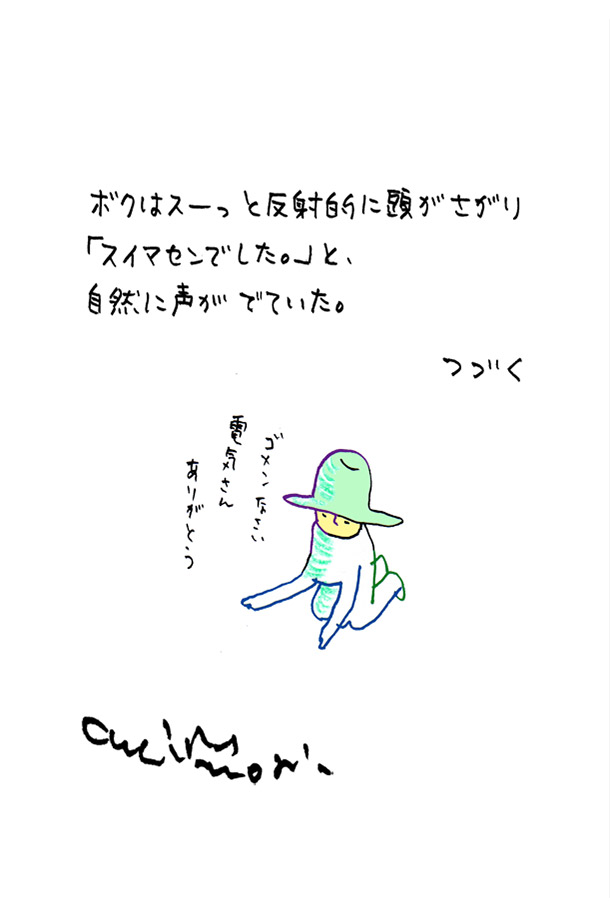 ボクはスーっと反射的に頭がさがり
「スイマセンでした。」と、
自然に声がでていた。
つづく
ゴメンなさい
電気さん
ありがとう